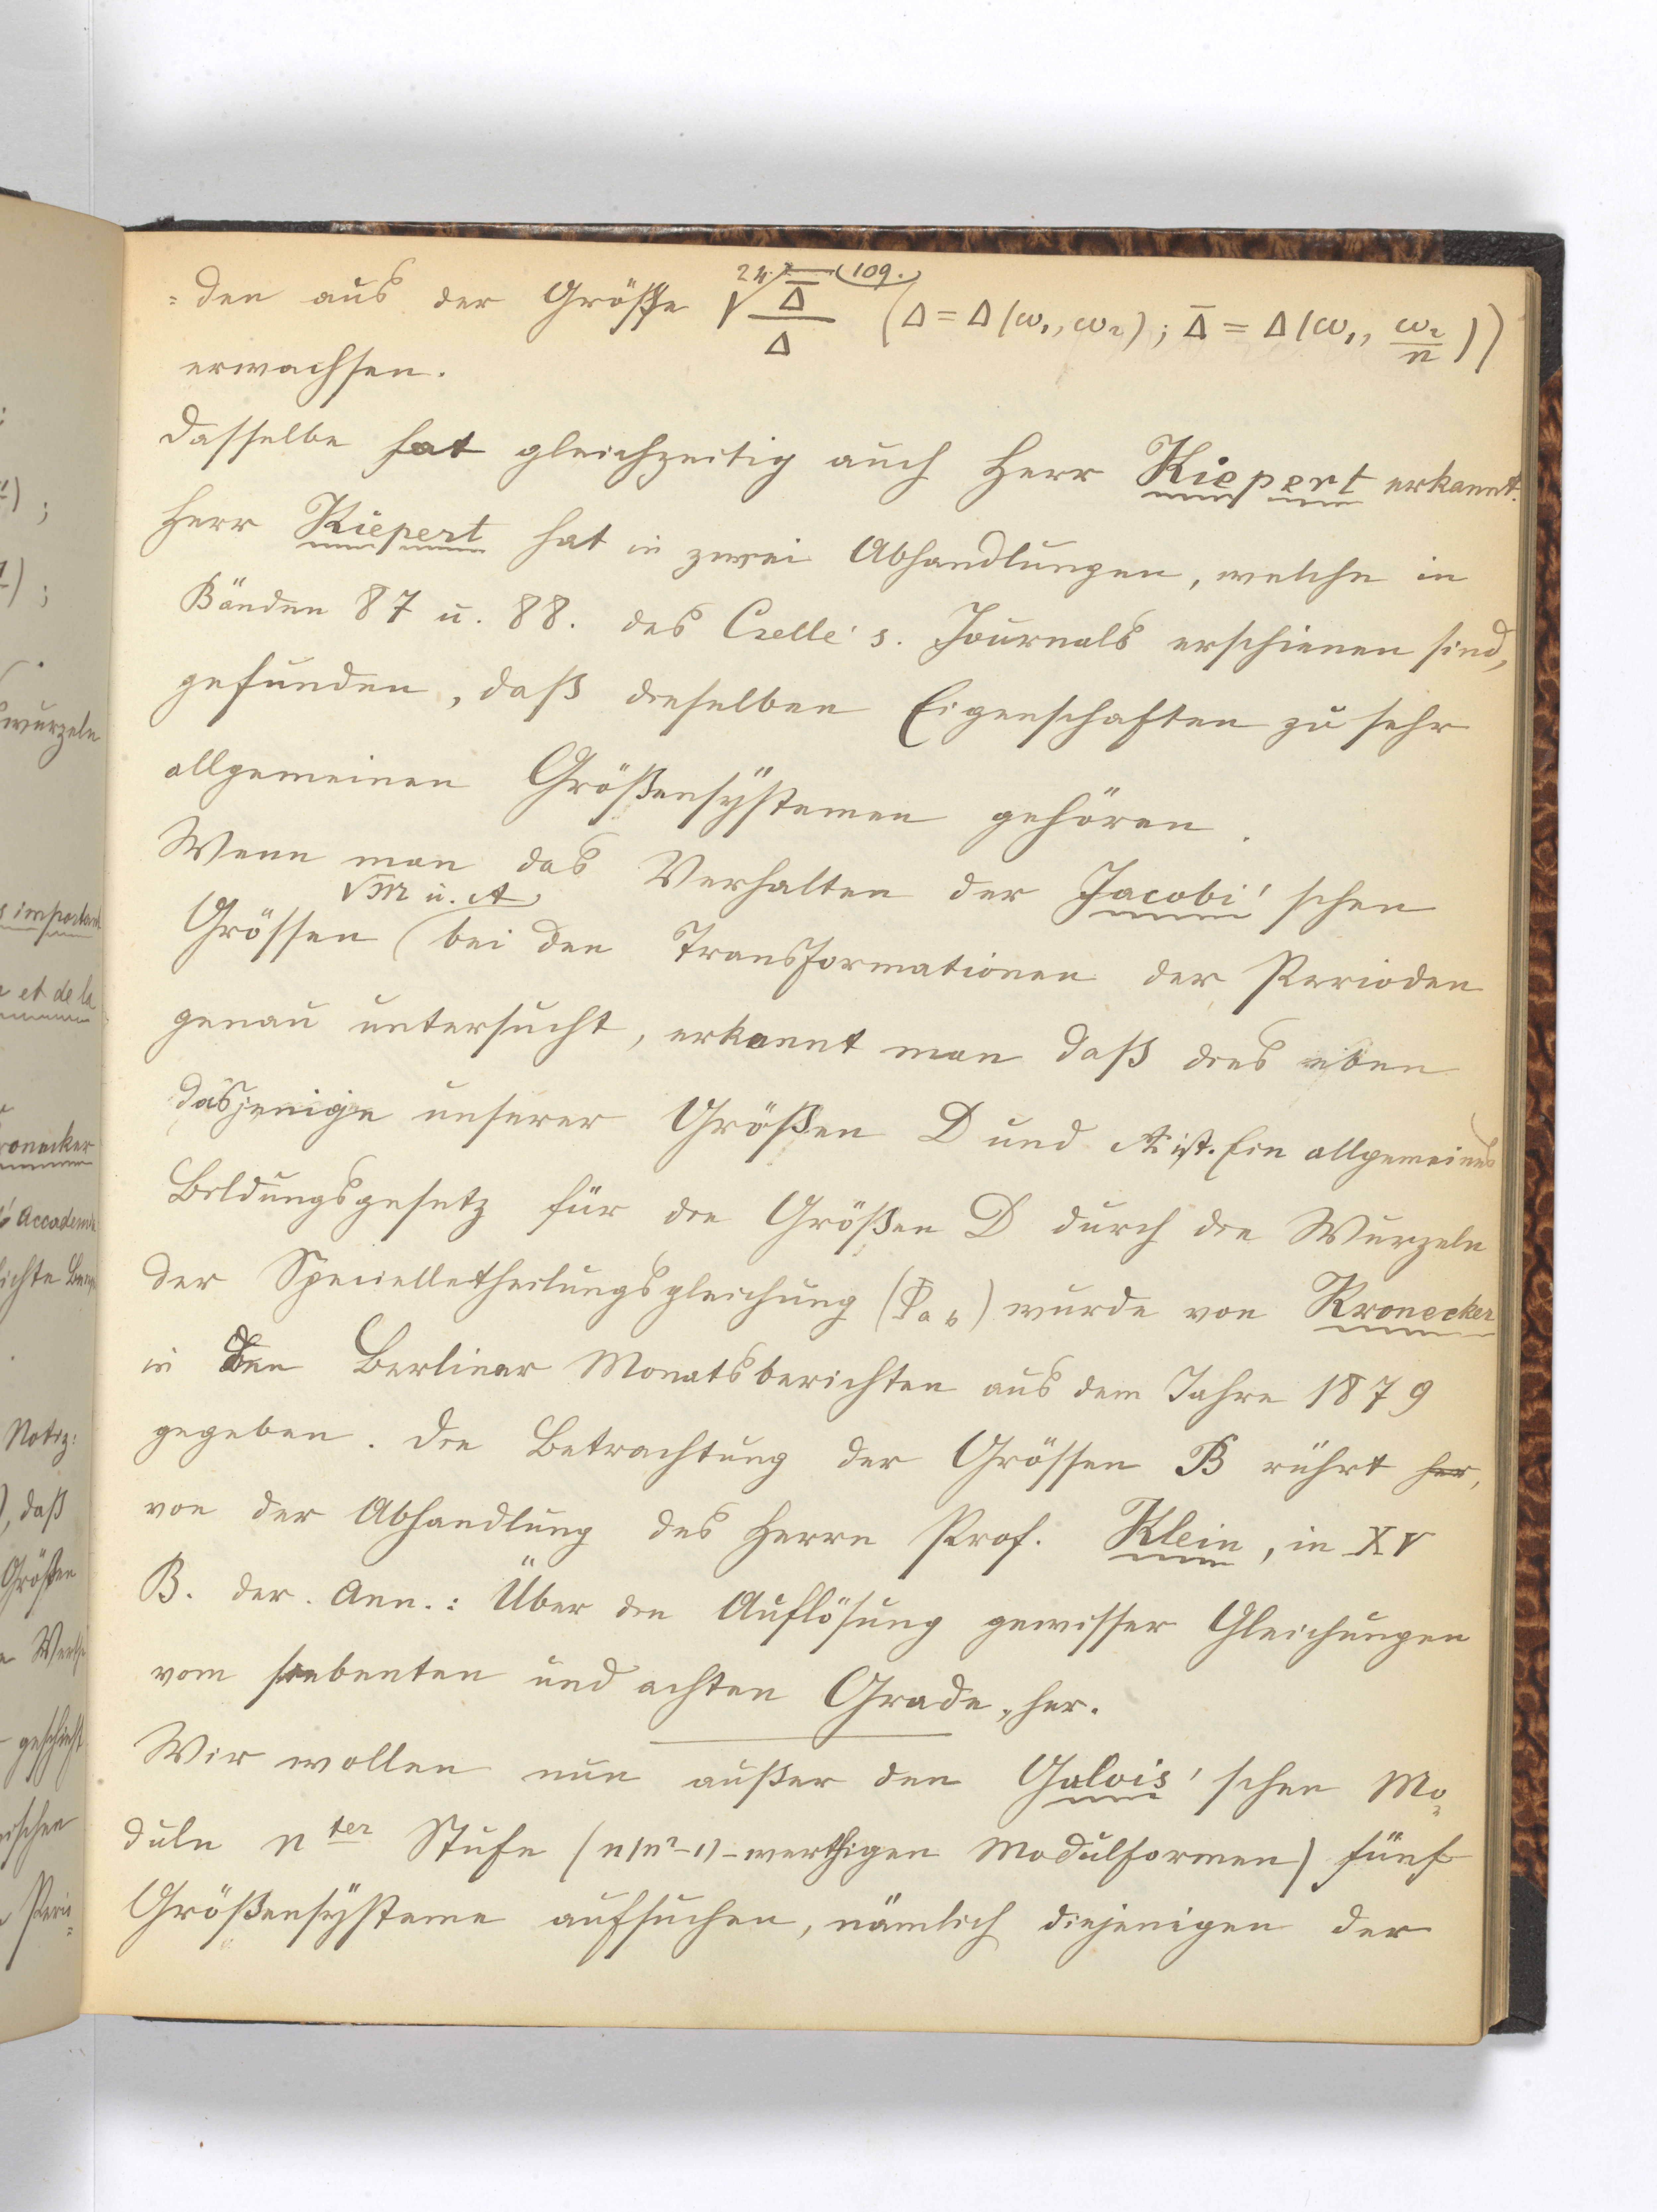 109.
=den aus der Größe \sqrt[24]{\frac{\overline{Δ}}{Δ}} (Δ = Δ(ω₁, ω₂); \overline{Δ} = Δ(ω₁, \frac{ω₂}{n}))
erwachsen.
Dasselbe hat gleichzeitig auch Herr Kiepert erkannt.
Herr Kiepert hat in zwei Abhandlungen, welche in
Bänden 87 u. 88. des Crelle's. Journals erschienen sind,
gefunden, daß dieselben Eigenschaften zu sehr
allgemeinen Größensystemen gehören.
Wenn man das Verhalten der Jacobi'schen
√M u. A
Grössen (bei den Transformationen der Perioden
genau untersucht, erkannt man daß dies eben
dasjenige unserer Größen D und A ist. Ein allgemeines
Bildungsgesetz für die Größen D durch die Wurzeln
der Specielletheilungsgleichung (φ a b) wurde von Kronecker
in den Berliner Monatsberichten aus dem Jahre 1879
gegeben. Die Betrachtung der Grössen B rührt her,
von der Abhandlung des Herrn Prof. Klein, in XV
B. der. Ann.: Über die Auflösung gewisser Gleichungen
vom siebenten und achten Grade, her.
Wir wollen nun außer den Galois'schen Mo=
duln n ter Stufe (n(n²-1)-werthigen Modulformen) fünf
Größensysteme aufsuchen, nämlich diejenigen der
wurzeln
s important
et de la
ronecker
Accademie
Notiz:
), daß
Größen
geschieht
ischen
Perio=